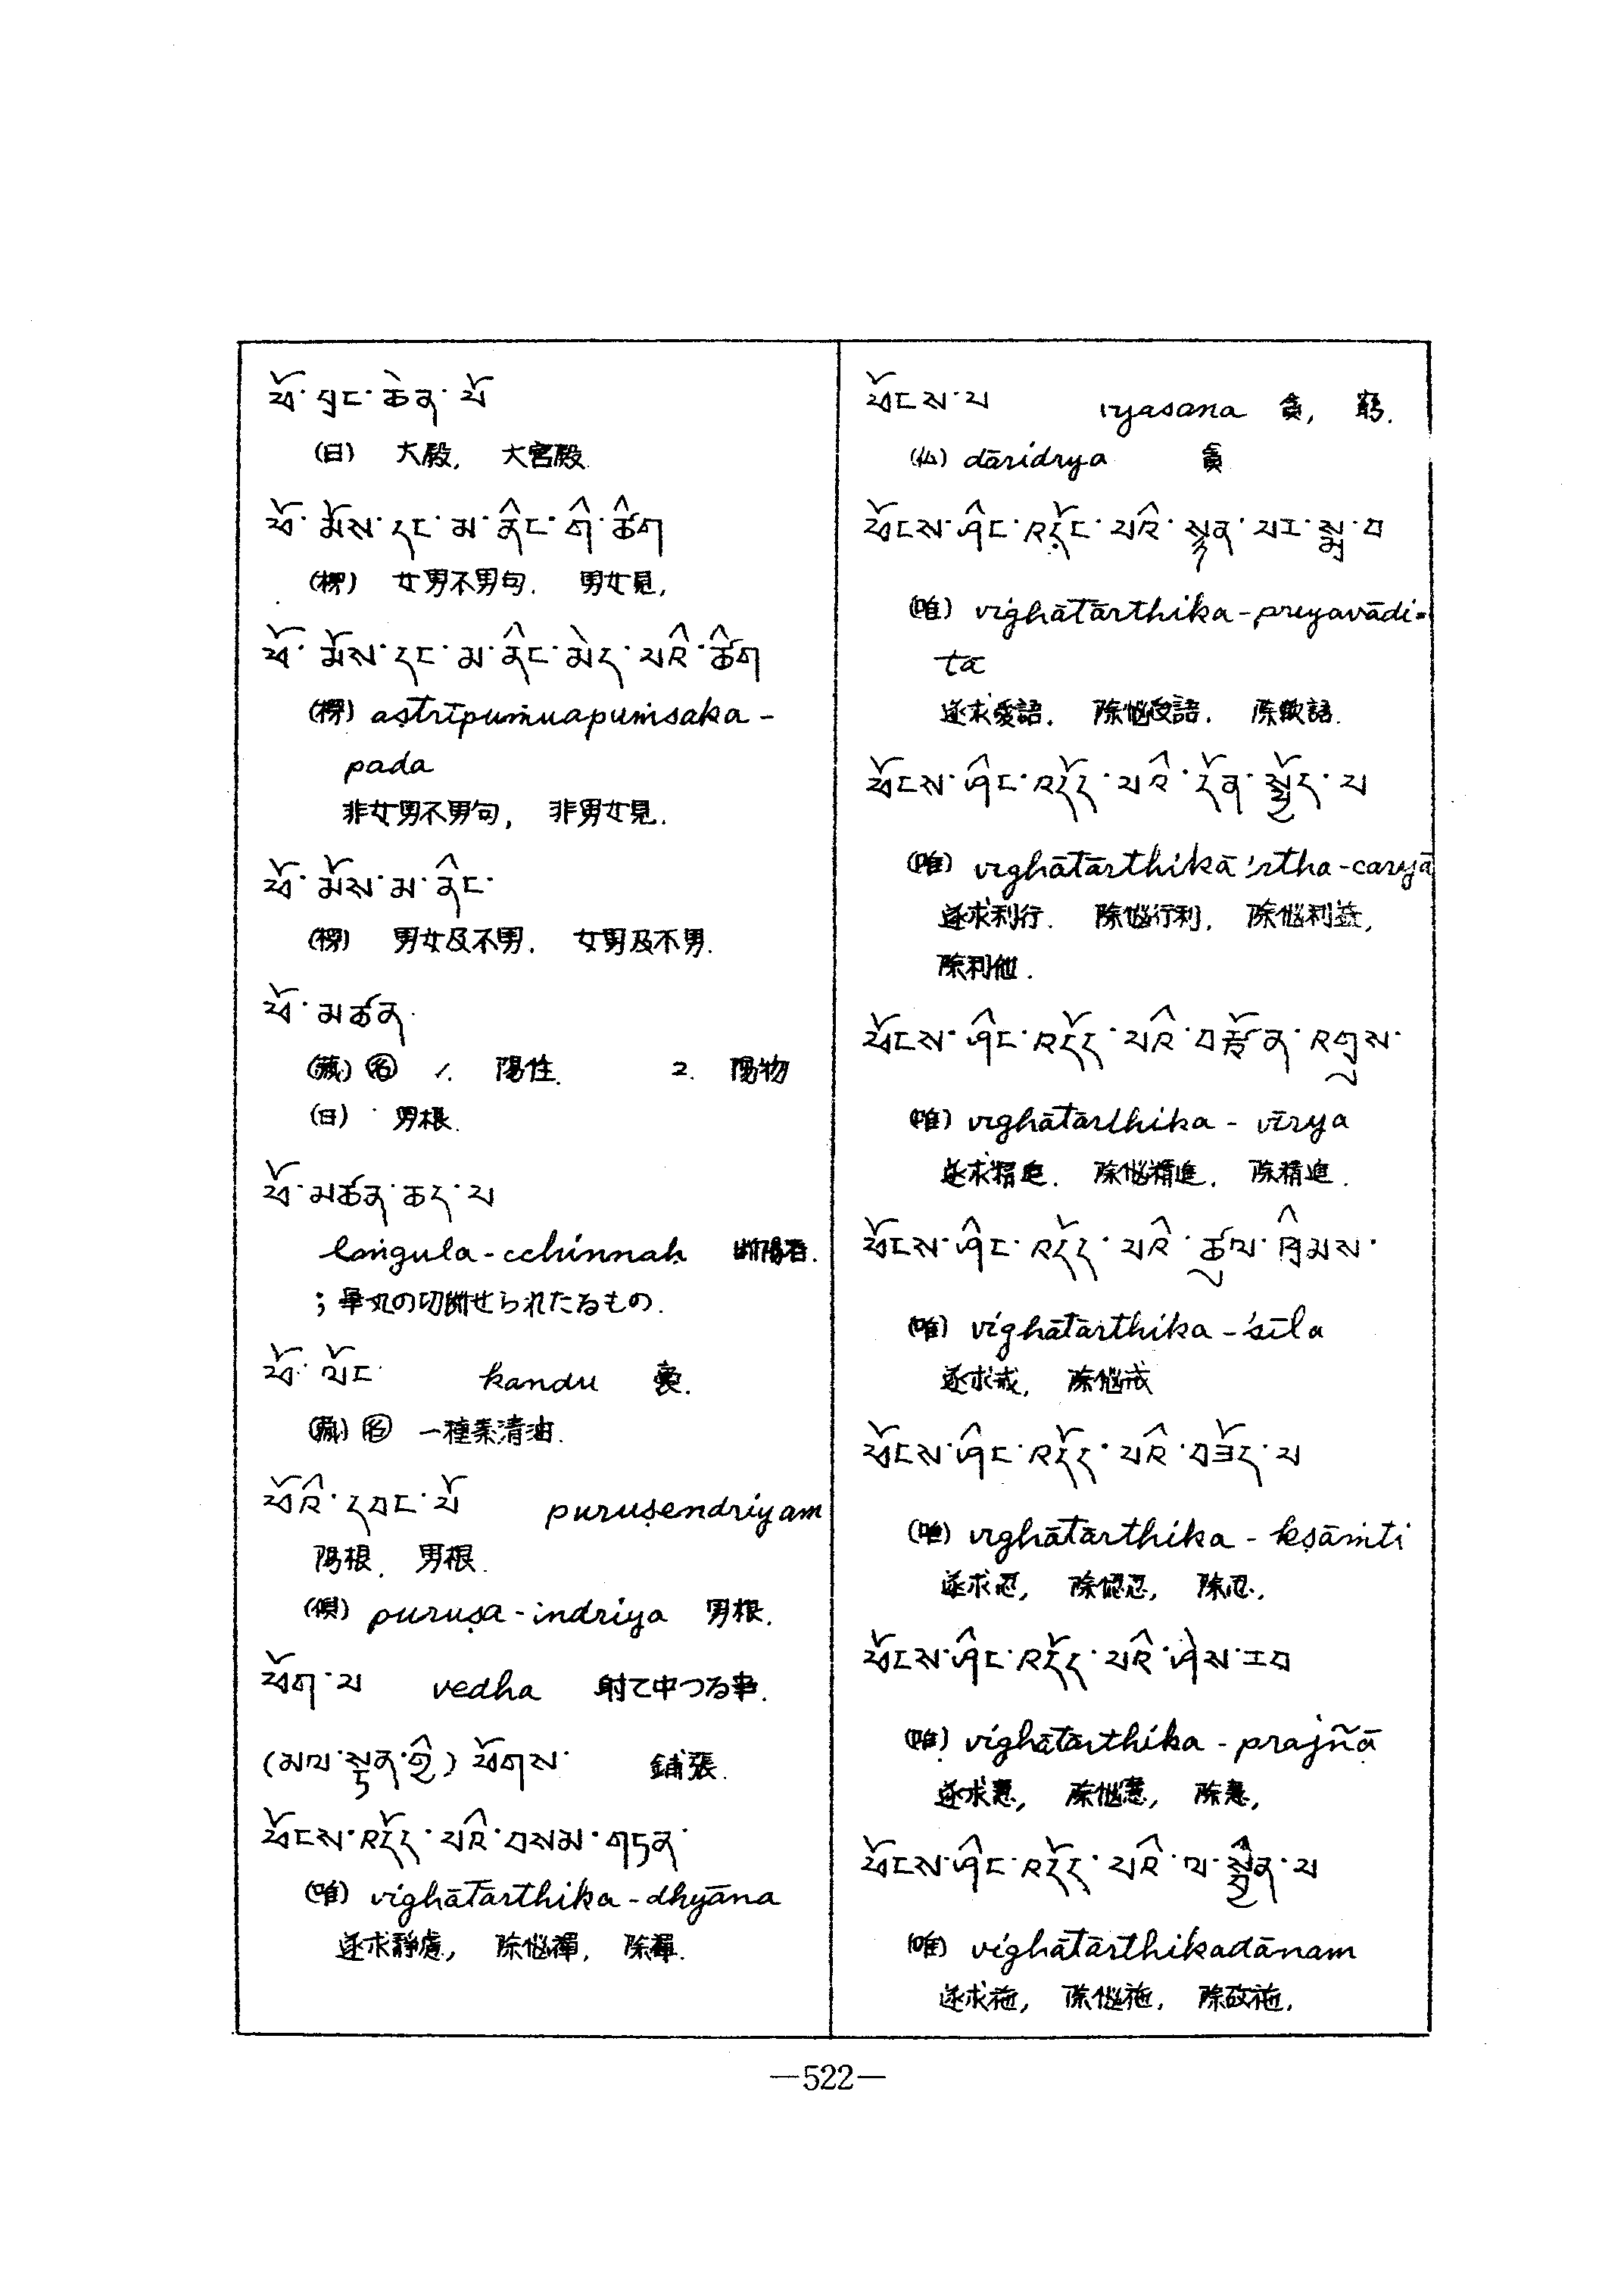 ཕོ་བྲང་ཆེན་པོ
(日) 大殿, 大宮殿.
ཕོ་མོས་དང་མ་ནིང་གི་ཚིག
(楞) 女男不男句. 男女見,
ཕོ་མོས་དང་མ་ནིང་མེད་པའི་ཚིག
(楞) aṣtrīpuṁuapuṁsaka-
pada
非女男不男句, 非男女見.
ཕོ་མོས་མ་ནིང་
(楞) 男女及不男. 女男及不男.
ཕོ་མཚན་
(藏) 名 1. 陽性. 2. 陽物
(日) 男根.
ཕོ་མཚན་ཆད་པ
laṅgula-cchinnaḥ 断陽者.
; 睾丸の切断せられたるもの.
ཕོ་ལོང་ kandu
(藏) 名 一種素清油.
ཕོའི་དབང་པོ puruṣendriyam
陽根. 男根.
(唄) puruṣa-indriya 男根.
ཕོག་པ vedha 射て中つる事.
(མལ་སྟན་གྱི) ཕོགས་ 鋪張.
ཕོངས་འདོད་པའི་བསམ་གཏན་
(唯) vighātārthika-dhyāna
遂求靜慮, 除惱禪, 除禪.
ཕོངས་པ vyasana 貪, 窮.
(仏) dāridrya 貪
ཕོངས་ཤིང་འདོང་པའི་སྙན་པར་སྨྲ་བ
(唯) vighātārthika-preyavādi=
ta
遂求愛語. 除惱愛語. 除軟語.
ཕོངས་ཤིང་འདོད་པའི་དོན་སྤྱོད་པ
(唯) vighātārthikā'rtha-caryā
遂求利行. 除惱行利, 除惱利益,
除利他.
ཕོངས་ཤིང་འདོད་པའི་བརྩོན་འགྲུས་
(唯) vighātārthika-vīrya
遂求精進. 除惱精進. 除精進.
ཕོངས་ཤིང་འདོད་པའི་ཚུལ་ཁྲིམས་
(唯) vighātārthika-'sīla
遂求戒, 除惱戒
ཕོངས་ཤིང་འདོད་པའི་བཟོད་པ
(唯) vighātārthika-kṣāṁti
遂求忍, 除惱忍, 除忍,
ཕོངས་ཤིང་འདོད་པའི་ཤེས་རབ
(唯) vighātārthika-prajñā
遂求慧, 除惱慧, 除慧,
ཕོངས་ཤིང་འདོད་པའི་ལ་སྦྱིན་པ
(唯) vighātārthikadānam
遂求施, 除惱施, 除故施.
—522—